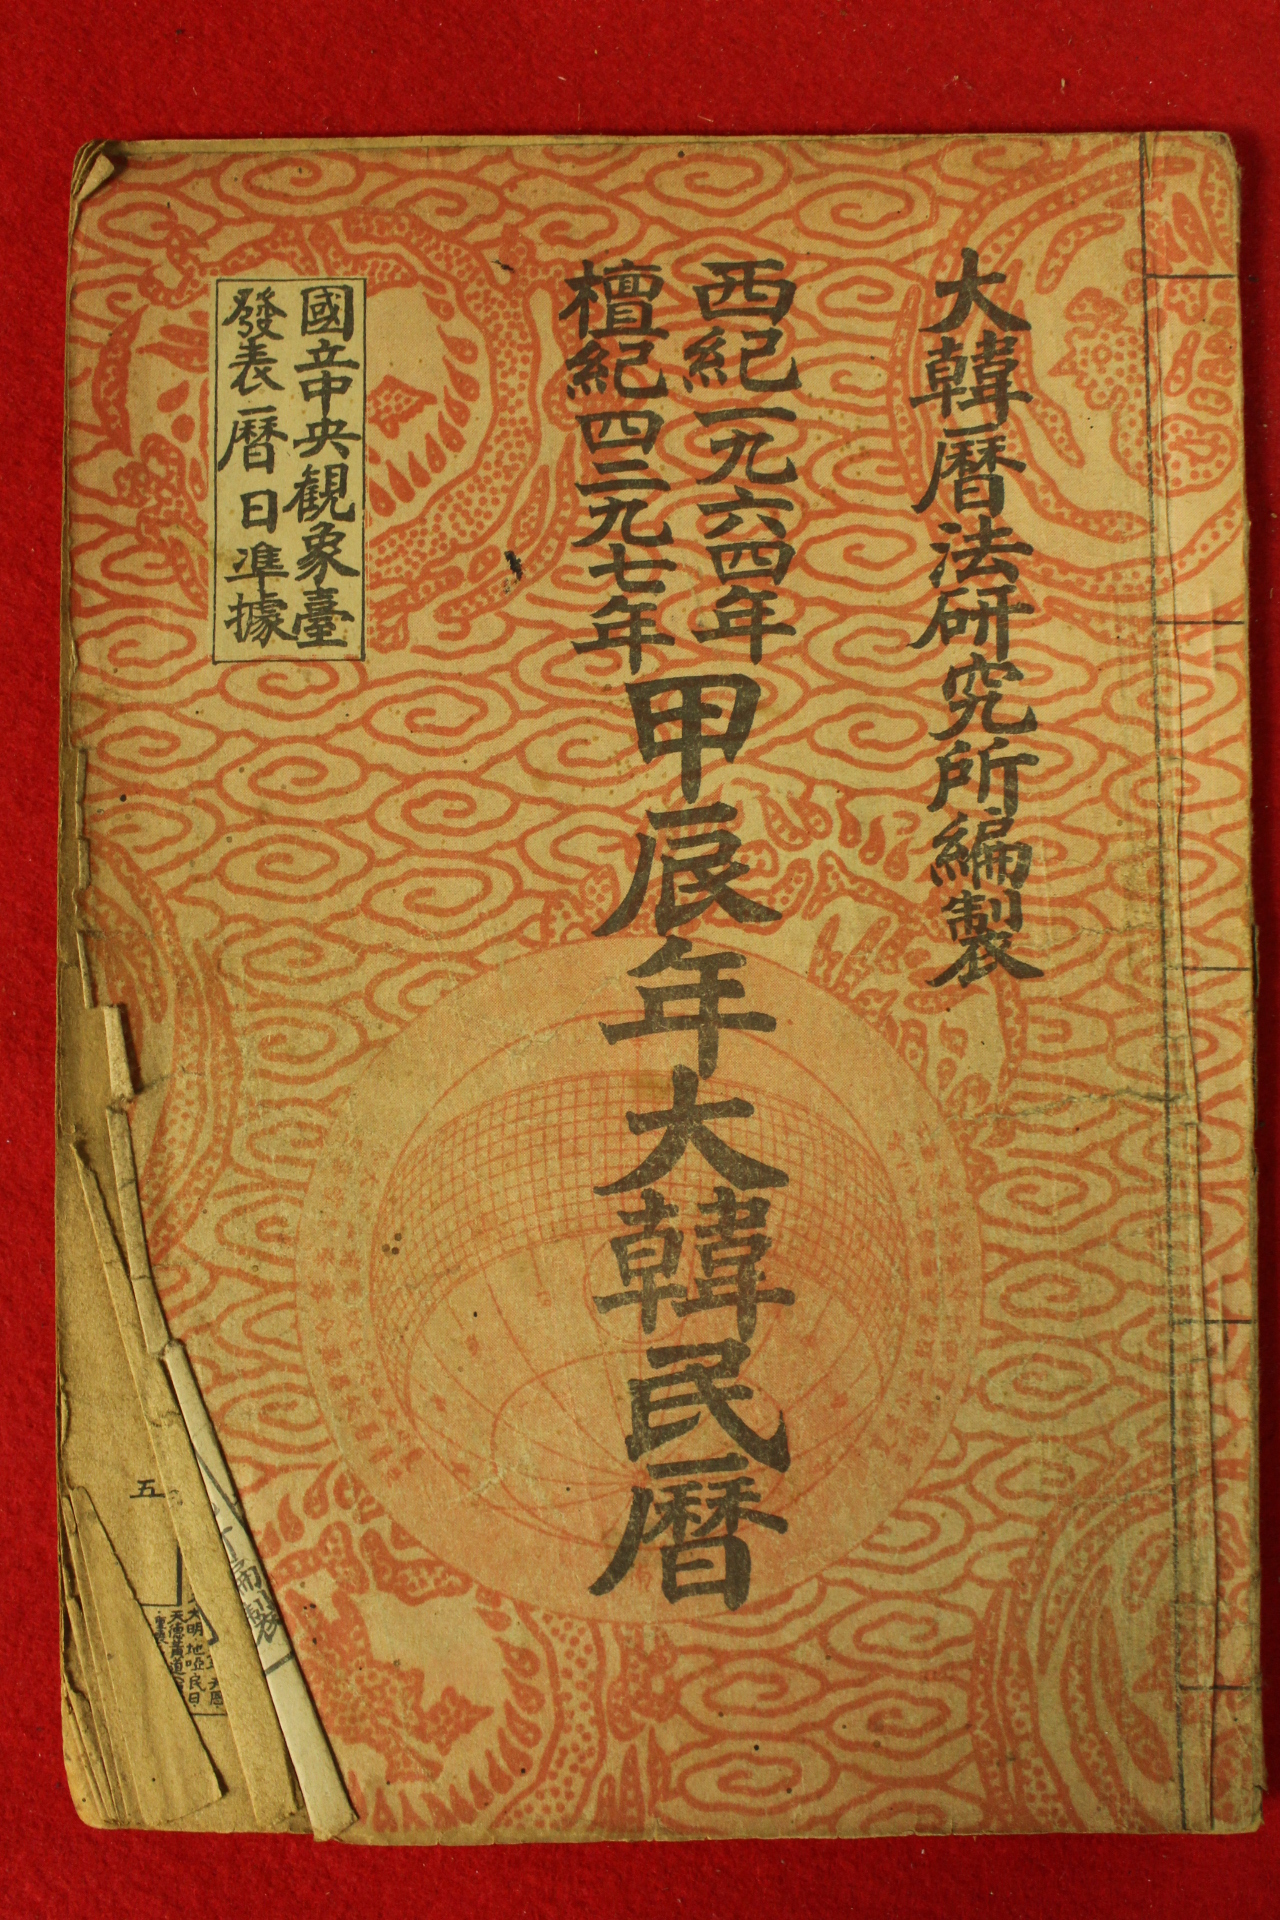 大韓曆法研究所編製
西紀一九六四年
檀紀四二九七年
甲辰年大韓民曆
國立中央觀象臺
發表曆日準據
五
編製